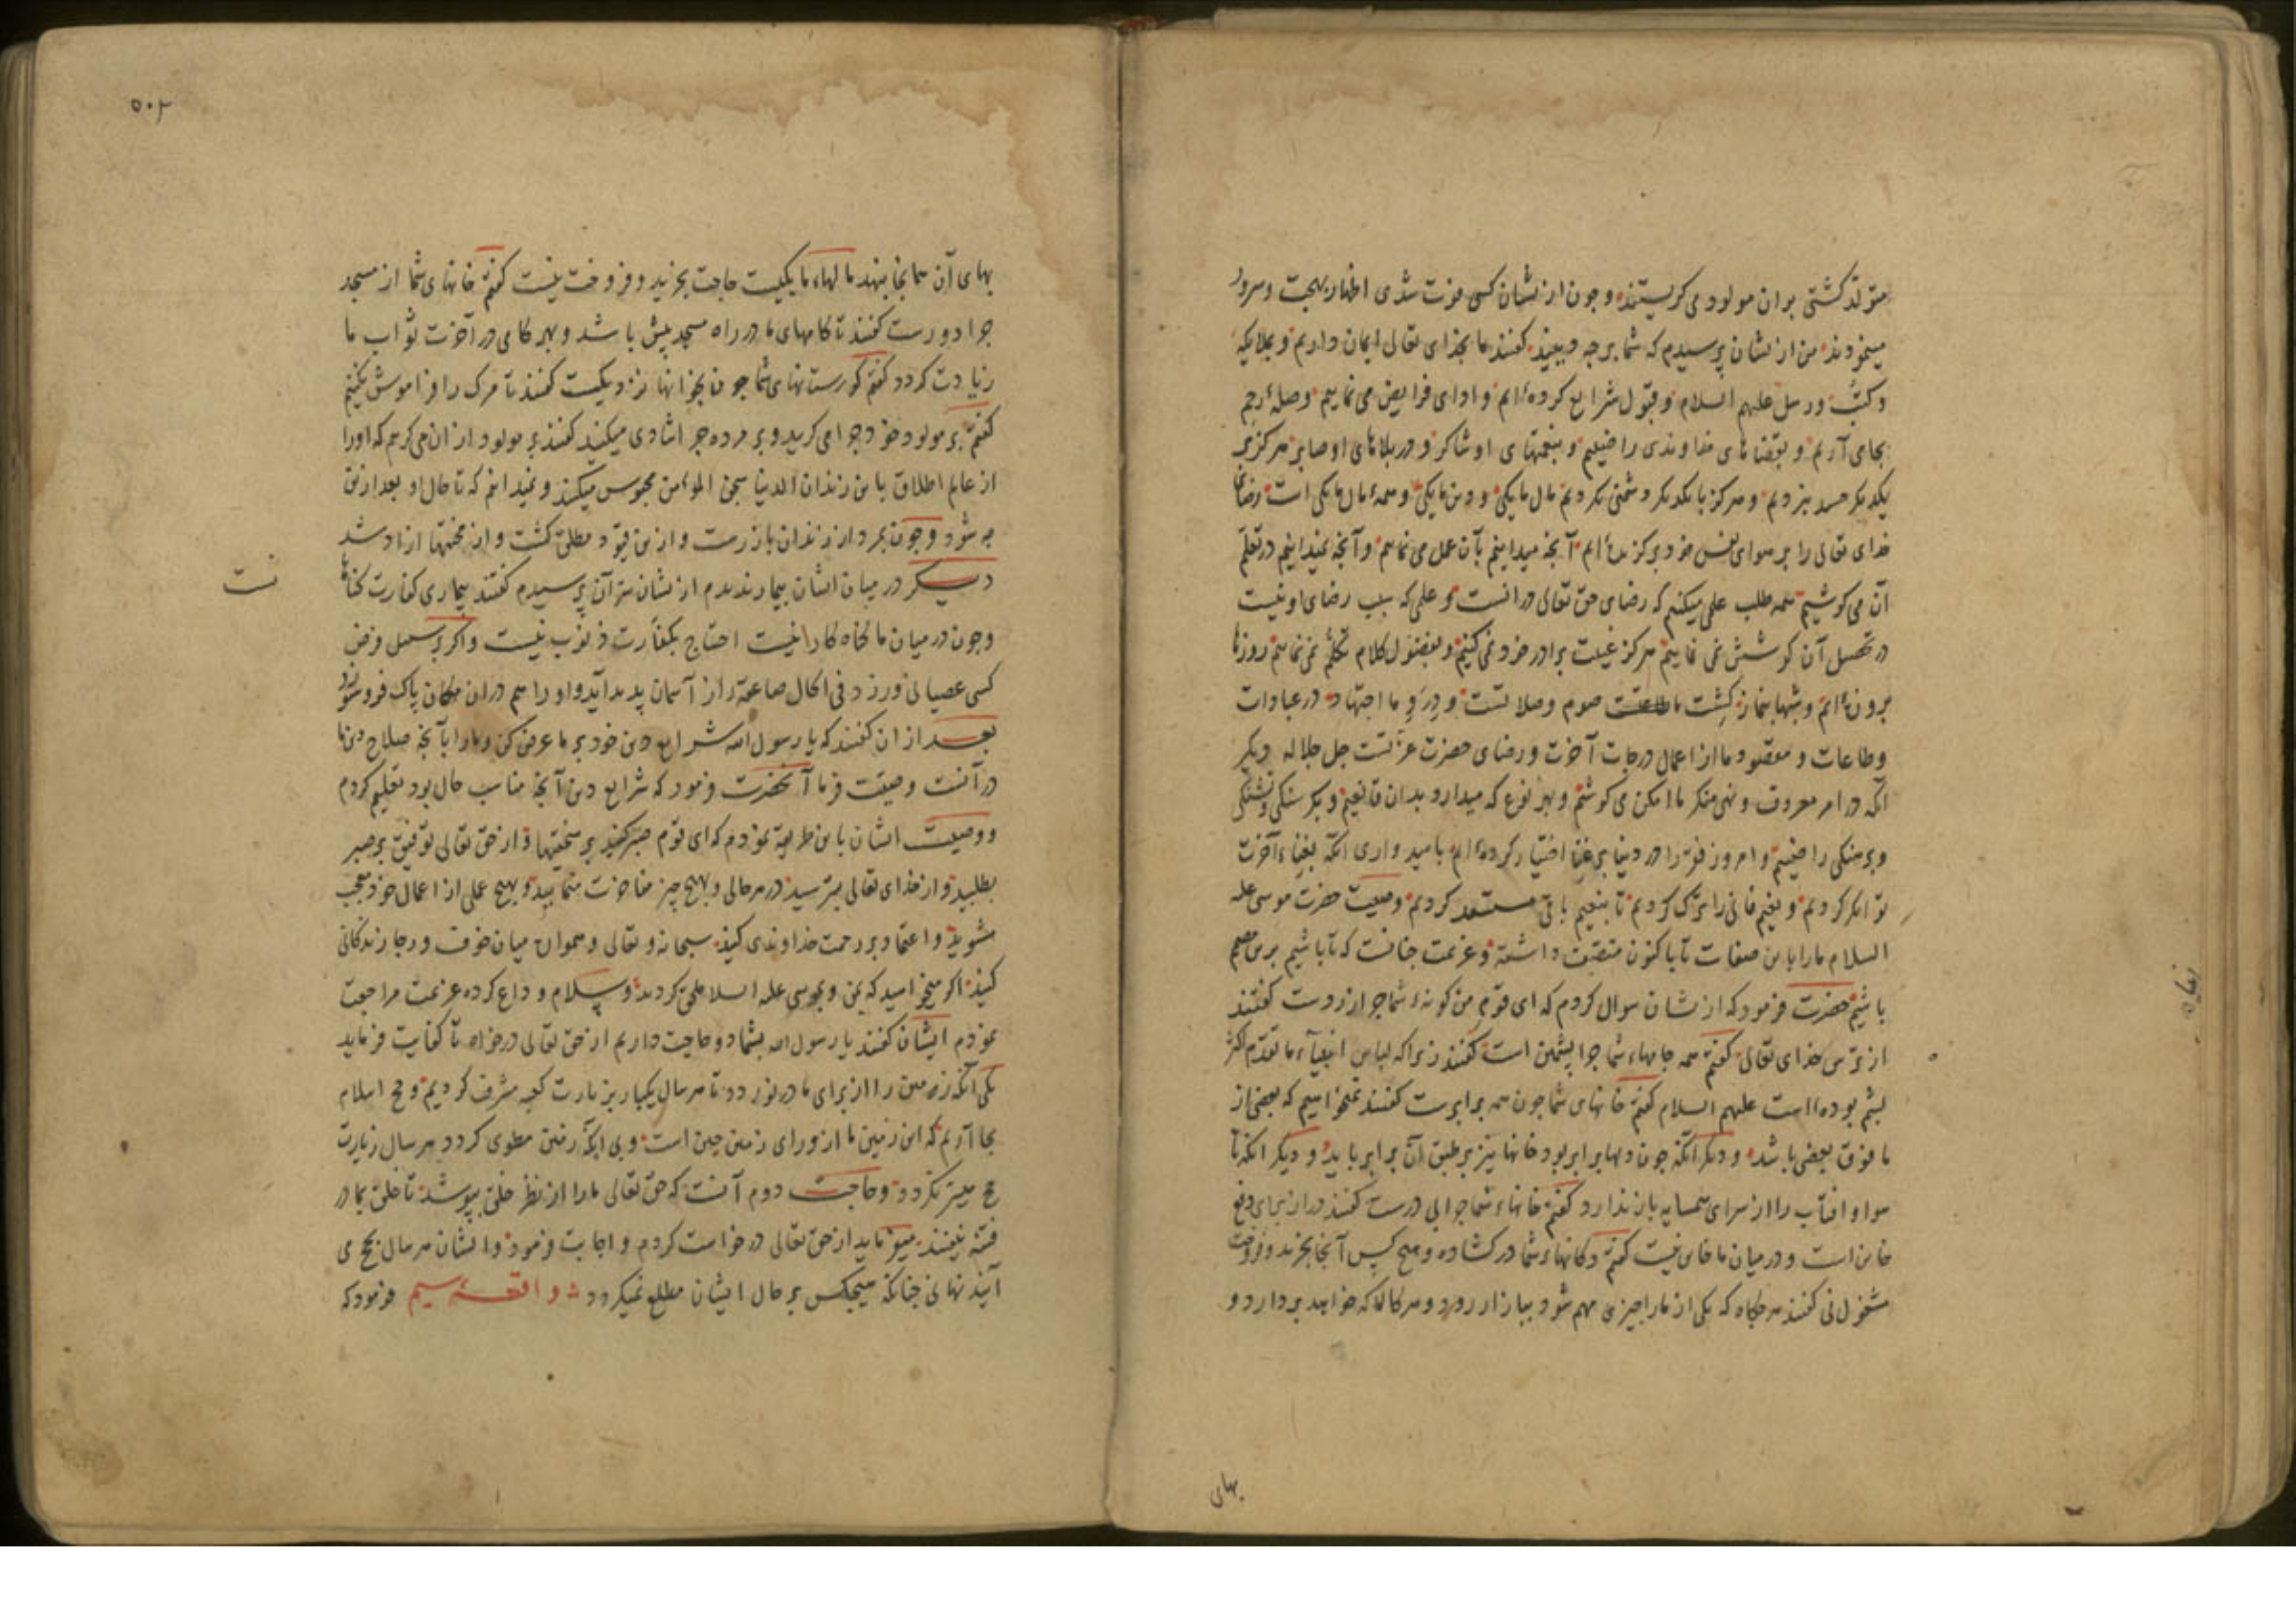 متولد کشتی بران مولود می کریستند و چون از نشان کسی فوت شدی اظهار بهجت وسرور
مینمودند من از نشان پرسیدم که شما برچه دینید کفتند ما بخدای تعالی ایمان داریم و بملایکه
وکتب ورسل علیهم السلام وقبول شرایع کرده ایم وادای فرایض می نماییم وصلهٔ رحم
بجای آریم و بقضاهای خداوندی راضییم و بنعمتهای او شاکر و در بلاهای او صابر هرکز بر
یکدیکر حسد نبردیم وهرکز با یکدیکر دشمنی نکردیم مال ما یکی ودین ما یکی وهمهٔ مال ما یکی است رضای
خدای تعالی را بر هوای نفس خود برکزیده ایم آنچه میدانیم بآن عمل می نماییم وآنچه نمیدانیم در تعلم
آن می کوشیم همه طلب علمی میکنیم که رضای حق تعالی در انست وعلمی که سبب رضای او نیست
در تحصیل آن کوشش نمی نماییم هرکز غیبت برادر خود نمی کنیم وبفضول کلام تکلم نمی نماییم روزها
بروزه ایم وشبها بنماز کشت ما طاعت صوم وصلاتست ودرو ما اجتهاد در عبادات
وطاعات و مقصود ما از اعمال درجات آخرت ورضای حضرت عزتست جل جلاله دیکر
آنکه در امر معروف ونهی منکر ما امکن می کوشیم وبهر نوع که میدارد بدان قانعیم وبکرسنکی وتشنکی
وبرهنکی راضییم وامروز فقر را در دنیا بر غنا اختیار کرده ایم بامیدواری آنکه بغناء آخرت
توانکر کردیم ونعیم فانی را ترک کردیم تا بنعیم باقی مستعد کردیم وصیت حضرت موسی علیه
السلام ما را باین صفات تا باکنون متصف داشته وعزیمت چنانست که تا باشیم برین مصمم
باشیم حضرت فرمود که از نشان سوال کردم که ای قوم من کونهٔ شما چرا زردست کفتند
از ترس خدای تعالی کفتم همه جامهاء شما چرا پشمین است کفتند زیراکه لباس انبیآء ما تقدم اکثر
پشم بوده است علیهم السلام کفتم خانهای شما چون همه برابرست کفتند نمیخواهیم که بعضی از
ما فوق بعضی باشد ودیکر آنکه چون دلها برابر بود خانها نیز بر طبق آن برابر باید ودیکر آنکه تا
هوا وآفتاب را از سرای همسایه باز ندارد کفتم خانهاء شما چرا بی درست کفتند در از برای دفع
خاین است ودر میان ما خاین نیست کفتم دکانهاء شما در کشاده وهیچ کس آنجا بخرید وفروخت
مشغول نی کفتند هرکاه که یکی از ما را چیزی مهم شود ببازار رود وهر کالا که خواهد بردارد و
بهای
۵۰۲
بهای آن همانجا بنهد مالهاء ما یکیست حاجت بخرید وفروخت نیست کفتم خانهای شما از مسجد
چرا دورست کفتند تا کامهای ما در راه مسجد بیش باشد وبهر کامی در آخرت ثواب ما
زیادت کردد کفتم کورستانهای شما چون بخانها نزدیکست کفتند تا مرک را فراموش نکنیم
کفتم بر مولود خود چرا می کریید وبر مرده چرا شادی میکنید کفتند بر مولود از ان می کریم که او را
از عالم اطلاق باین زندان الدنیا سجن المؤمن محبوس میکنند ونمیدانیم که تا حال او بعد ازین
چه شود وچون بمرد از زندان باز رست واز ین قیود مطلق کشت واز محنتها ازاد شد
دیـکر در میان ایشان بیمار ندیدم از نشان سر آن پرسیدم کفتند بیماری کفارت کناهانست
وچون در میان ما کناه کار نیست احتیاج بکفارت ذنوب نیست واکر بر سبیل فرض
کسی عصیانی ورزد فی الحال صاعقه از آسمان پدید آید واو را هم دران مکان پاک فرو سوزد
بعد از ان کفتند که یا رسول الله شرایع دین خود بر ما عرض کن وما را بآنچه صلاح دین ما
در آنست وصیت فرما آنحضرت فرمود که شرایع دین آنچه مناسب حال بود تعلیم کردم
ووصیت ایشان باین طریقه نمودم که ای قوم صبر کنید بر سختیها واز حق تعالی توفیق بر صبر
بطلبید واز خدای تعالی بترسید در هر حالی وبهیچ چیز مفاخرت منمایید وبهیچ عملی از اعمال خود معجب
مشوید واعتماد بر رحمت خداوندی کنید سبحانه وتعالی وهمواره میان خوف ورجا زندکانی
کنید اکر میخواهید که بمن وبموسی علیه السلام ملحق کردید وسلام وداع کرده عزیمت مراجعت
نمودم ایشان کفتند یا رسول الله بشما دو حاجت داریم از حق تعالی درخواه تا کفایت فرماید
یکی آنکه زمین را از برای ما در نوردد تا هر سال یکبار بزیارت کعبه مشرف کردیم وحج اسلام
بجا آریم که این زمین ما از ورای زمین چین است وبی آنکه زمین مطوی کردد هر سال زیارت
حج میسر نکردد وحاجت دوم آنست که حق تعالی ما را از نظر خلق بپوشد تا خلق بما در
فتنه نیفتند میفرماید از حق تعالی درخواست کردم واجابت فرمود وایشان هر سال بحج می
آیند نهانی چنانکه هیچکس بر حال ایشان مطلع نمیکردد واقعـهٔ سیم فرمود که